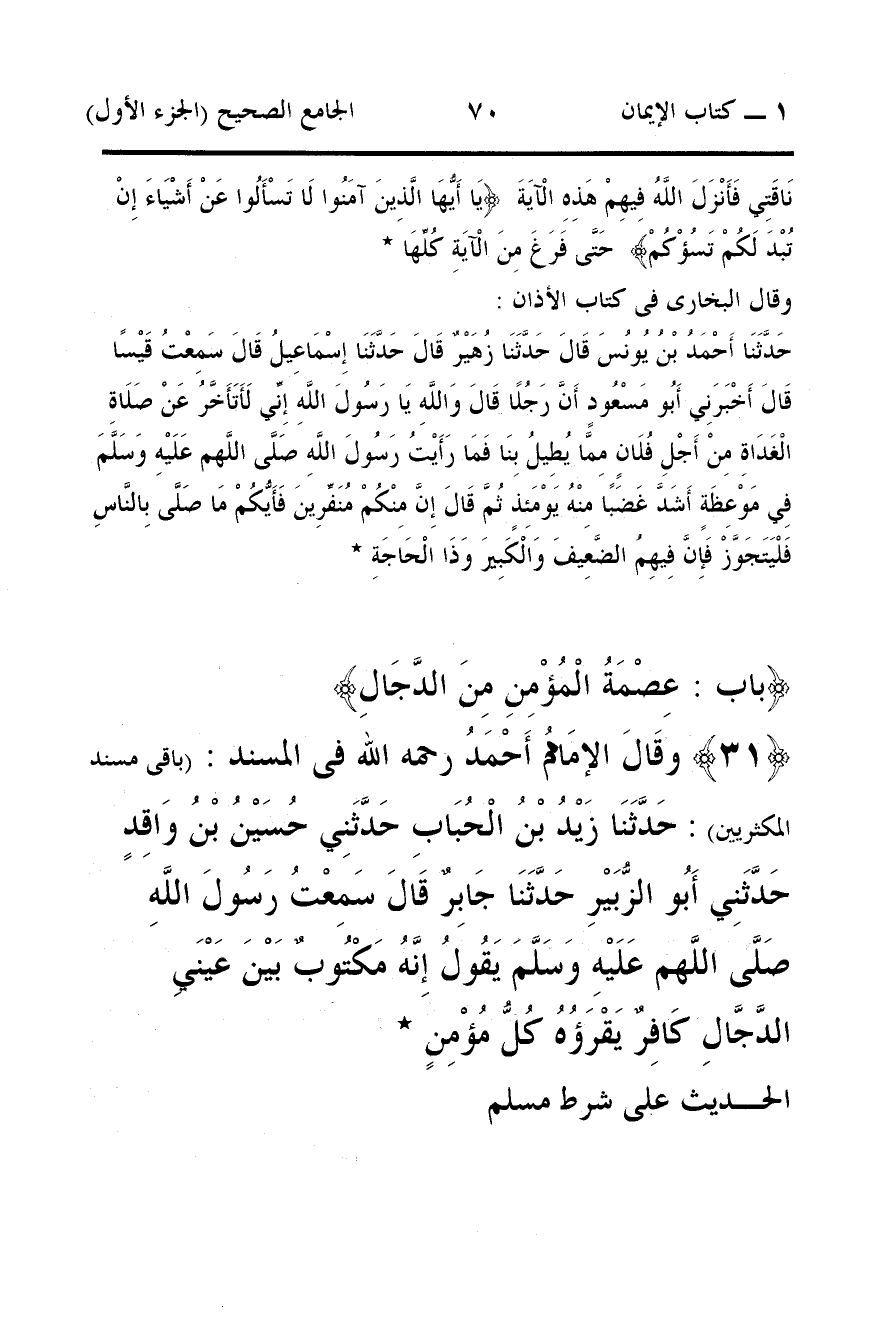 ١ ـــ كتاب الإيمان ٧٠ الجامع الصحيح (الجزء الأول)
نَاقَتِي فَأَنْزَلَ اللَّهُ فِيهِمْ هَذِهِ الْآيَةَ ﴿يَا أَيُّهَا الَّذِينَ آمَنُوا لَا تَسْأَلُوا عَنْ أَشْيَاءَ إِنْ
تُبْدَ لَكُمْ تَسُؤْكُمْ﴾ حَتَّى فَرَغَ مِنَ الْآيَةِ كُلِّهَا *
وقال البخارى فى كتاب الأذان :
حَدَّثَنَا أَحْمَدُ بْنُ يُونُسَ قَالَ حَدَّثَنَا زُهَيْرٌ قَالَ حَدَّثَنَا إِسْمَاعِيلُ قَالَ سَمِعْتُ قَيْسًا
قَالَ أَخْبَرَنِي أَبُو مَسْعُودٍ أَنَّ رَجُلًا قَالَ وَاللَّهِ يَا رَسُولَ اللَّهِ إِنِّي لَأَتَأَخَّرُ عَنْ صَلَاةِ
الْغَدَاةِ مِنْ أَجْلِ فُلَانٍ مِمَّا يُطِيلُ بِنَا فَمَا رَأَيْتُ رَسُولَ اللَّهِ صَلَّى اللَّهم عَلَيْهِ وَسَلَّمَ
فِي مَوْعِظَةٍ أَشَدَّ غَضَبًا مِنْهُ يَوْمَئِذٍ ثُمَّ قَالَ إِنَّ مِنْكُمْ مُنَفِّرِينَ فَأَيُّكُمْ مَا صَلَّى بِالنَّاسِ
فَلْيَتَجَوَّزْ فَإِنَّ فِيهِمُ الضَّعِيفَ وَالْكَبِيرَ وَذَا الْحَاجَةِ *
﴿باب : عِصْمَةُ الْمُؤْمِنِ مِنَ الدَّجَالِ﴾
﴿٣١﴾ وقَالَ الإِمَامُ أَحْمَدُ رحمه الله فى المسند : (باقى مسند
المكثريين) : حَدَّثَنَا زَيْدُ بْنُ الْحُبَابِ حَدَّثَنِي حُسَيْنُ بْنُ وَاقِدٍ
حَدَّثَنِي أَبُو الزُّبَيْرِ حَدَّثَنَا جَابِرٌ قَالَ سَمِعْتُ رَسُولَ اللَّهِ
صَلَّى اللَّهم عَلَيْهِ وَسَلَّمَ يَقُولُ إِنَّهُ مَكْتُوبٌ بَيْنَ عَيْنَيِ
الدَّجَّالِ كَافِرٌ يَقْرَؤُهُ كُلُّ مُؤْمِنٍ *
الحـــديث على شرط مسلم